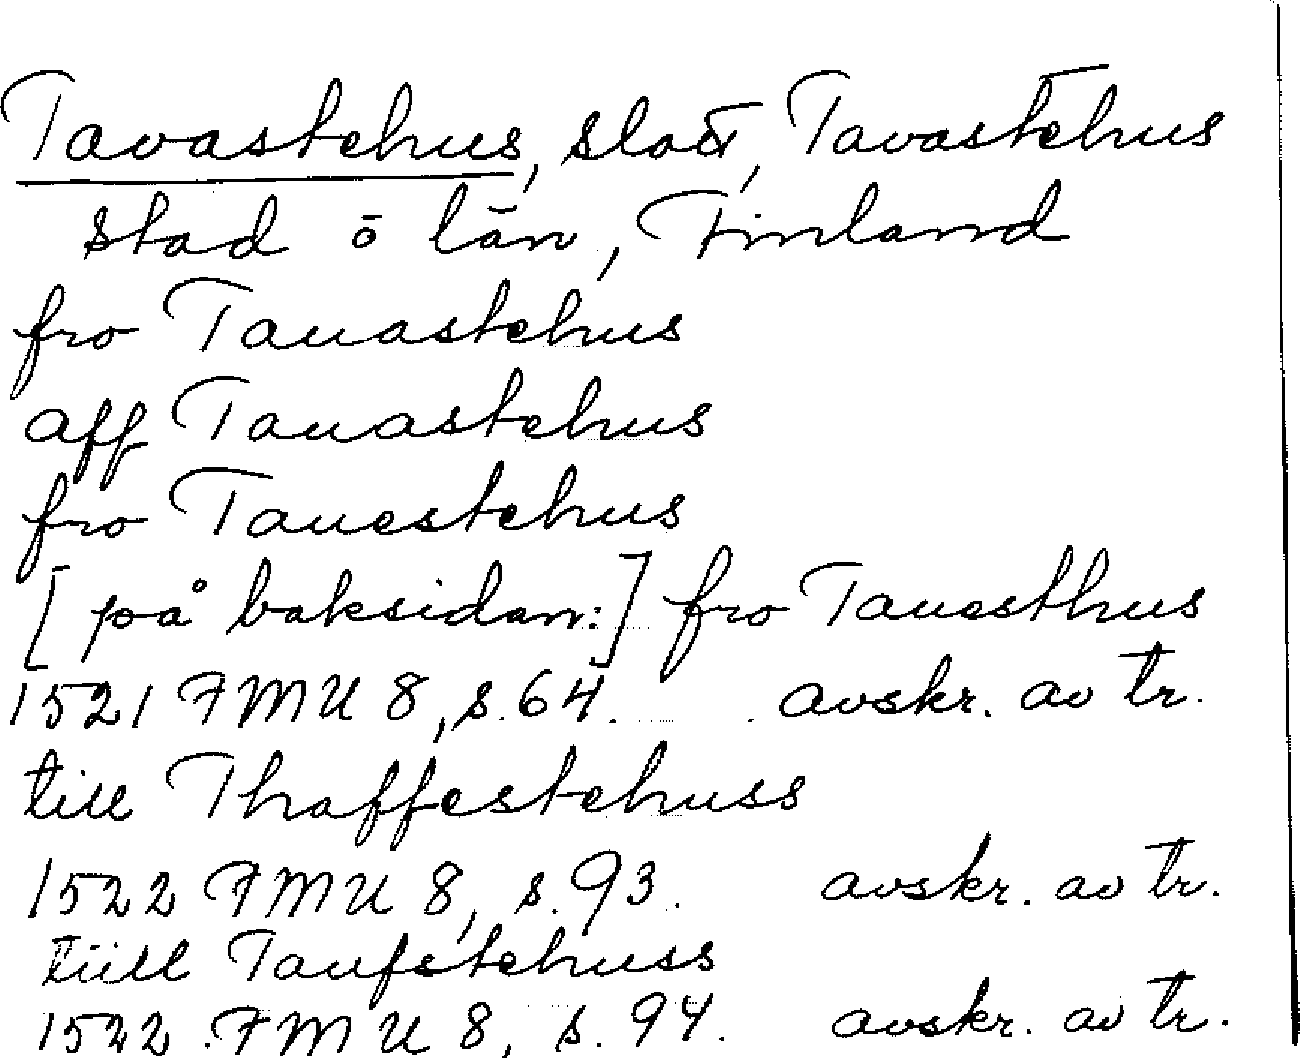 Tavastehus, slott, Tavastehus
stad o län, Finland
fro Tauastehus
aff Tauastehus
fro Tauestehus
[på baksidan:] fro Tauesthus
1521 FMU 8, s. 64. avskr. av tr.
till Thaffestehuss
1522 FMU 8, s. 93. avskr. av tr.
tiill Taufstehuss
1522 FMU 8, s. 94. avskr. av tr.